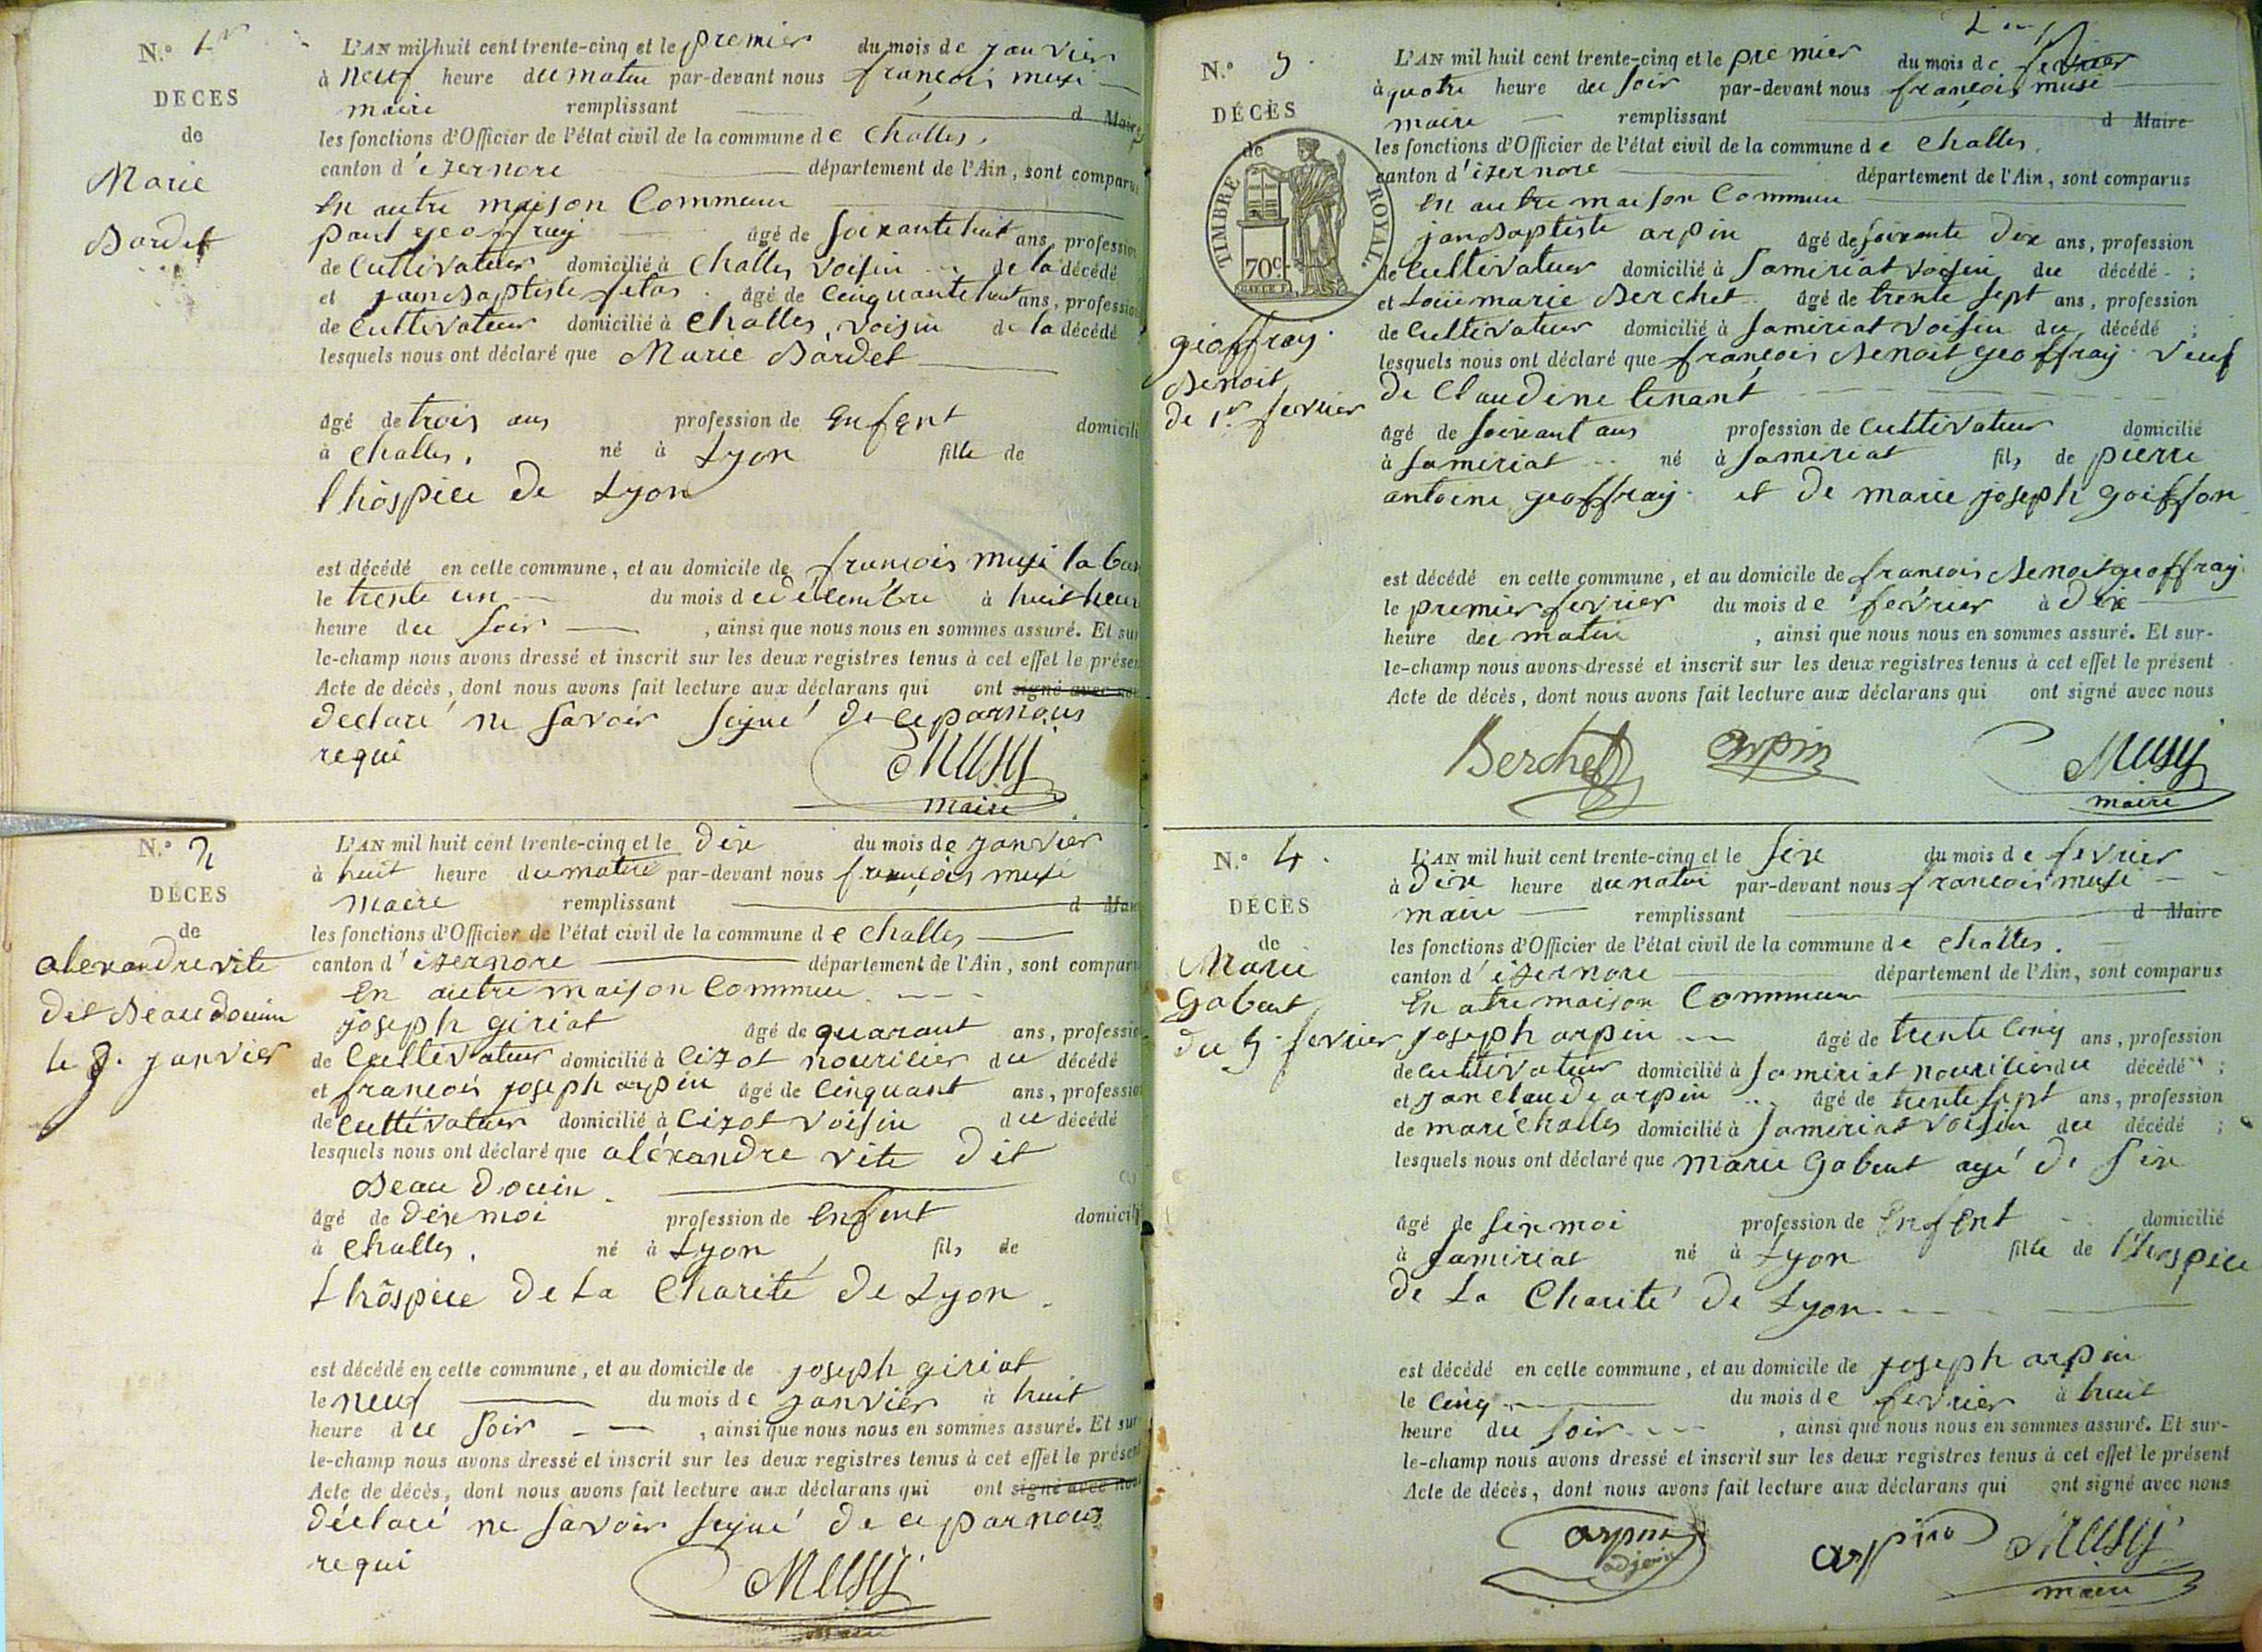 N.° 1er
DECES
de
Marie
Bardet
L'AN mil huit cent trente-cinq et le premier du mois de janvier
à neuf heure du matin par-devant nous françois musi
maire remplissant d Maire
les fonctions d'Officier de l'état civil de la commune de Challes,
canton d'izernore département de l'Ain, sont comparus
En autre maison Commun
paul geoffray âgé de soixante huit ans, profession
de Cultivateur domicilié à Challes voisin de la décédé
et jean Baptiste âgé de Cinquante huit ans, profession
de Cultivateur domicilié à Challes, voisin de la décédé
lesquels nous ont déclaré que Marie Bardet
âgé de trois ans profession de Enfent domicili
à Challes, né à Lyon fille de
l'hôspice de Lyon
est décédé en cette commune, et au domicile de françois musi
le trente un du mois de décembre à huit heur
heure du soir , ainsi que nous nous en sommes assuré. Et sur
le-champ nous avons dressé et inscrit sur les deux registres tenus à cet effet le présen
Acte de décès, dont nous avons fait lecture aux déclarans qui ont signé avec nous
declaré ne savoir signé de ce par nous
requi
Musy
maire
N.° 2
DÉCES
de
alexandre vite
dit Beaudouin
le 9. janvier
L'AN mil huit cent trente-cinq et le dix du mois de janvier
à huit heure du matin par-devant nous françois musi
maire remplissant d Maire
les fonctions d'Officier de l'état civil de la commune de Challes
canton d'izernore département de l'Ain, sont comparu
En autre maison Commun
joseph giriat âgé de quarant ans, professio
de Cultivateur domicilié à Cizot nouricier du décédé
et françois joseph arpin âgé de Cinquant ans, professio
de Cultivateur domicilié à Cizot voisin du décédé
lesquels nous ont déclaré que aléxandre vite dit
Beaudouin.
âgé de dix moi profession de Enfent domicili
à Challes, né à Lyon, fils de
L'hôspice de La Charité de Lyon.
est décédé en cette commune, et au domicile de joseph giriat
le neuf du mois de janvier à huit
heure du soir , ainsi que nous nous en sommes assuré. Et sur
le-champ nous avons dressé et inscrit sur les deux registres tenus à cet effet le présen
Acte de décès, dont nous avons fait lecture aux déclarans qui ont signé avec nous
déclaré ne savoir signé de ce par nous
requi
Musy
maire
N.° 3.
DÉCÈS
de
TIMBRE ROYAL.
70c
geoffray
Benoit
de 1er fevrier
L'AN mil huit cent trente-cinq et le premier du mois de fevrier
à quatre heure du soir par-devant nous françois musi
maire remplissant d Maire
les fonctions d'Officier de l'état civil de la commune de Challes,
canton d'izernore département de l'Ain, sont comparus
En autre maison Commun
jan Baptiste arpin âgé de soixante dix ans, profession
de Cultivateur domicilié à Samiriat voisin du décédé ;
et Loüi marie Berchet âgé de trente sept ans, profession
de Cultivateur domicilié à Samiriat voisin du décédé ;
lesquels nous ont déclaré que françois Benoit geoffray veuf
de Claudine tenant
âgé de soixant ans profession de Cultivateur domicilié
à Samiriat né à Samiriat fils de pierre
antoine geoffray et de marie joseph goiffon
est décédé en cette commune, et au domicile de françois Benoit geoffray
le premier fevrier du mois de février à dix
heure du matin , ainsi que nous nous en sommes assuré. Et sur-
le-champ nous avons dressé et inscrit sur les deux registres tenus à cet effet le présent
Acte de décès, dont nous avons fait lecture aux déclarans qui ont signé avec nous
Berchet arpin Musy
maire
N.° 4.
DÉCÈS
de
Marie
Gabent
du 5 fevrier
L'AN mil huit cent trente-cinq et le six du mois de fevrier
à dix heure du matin par-devant nous françois musi
maire remplissant d Maire
les fonctions d'Officier de l'état civil de la commune de Challes.
canton d'izernore département de l'Ain, sont comparus
En atre maison Commun
joseph arpin âgé de trente Cinq ans, profession
de Cultivateur domicilié à Samiriat nouricier du décédé ;
et jan Claude arpin âgé de trente sept ans, profession
de marichalles domicilié à Samiriat voisin du décédé ;
lesquels nous ont déclaré que marie Gabent agé de six
âgé de six moi profession de Enfent domicilié
à Samiriat né à Lyon fille de l'hospice
de La Charité de Lyon
est décédé en cette commune, et au domicile de joseph arpin
le Cinq du mois de fevrier à huit
heure du soir , ainsi que nous nous en sommes assuré. Et sur-
le-champ nous avons dressé et inscrit sur les deux registres tenus à cet effet le présent
Acte de décès, dont nous avons fait lecture aux déclarans qui ont signé avec nous
arpin arpin Musy
adjoint maire